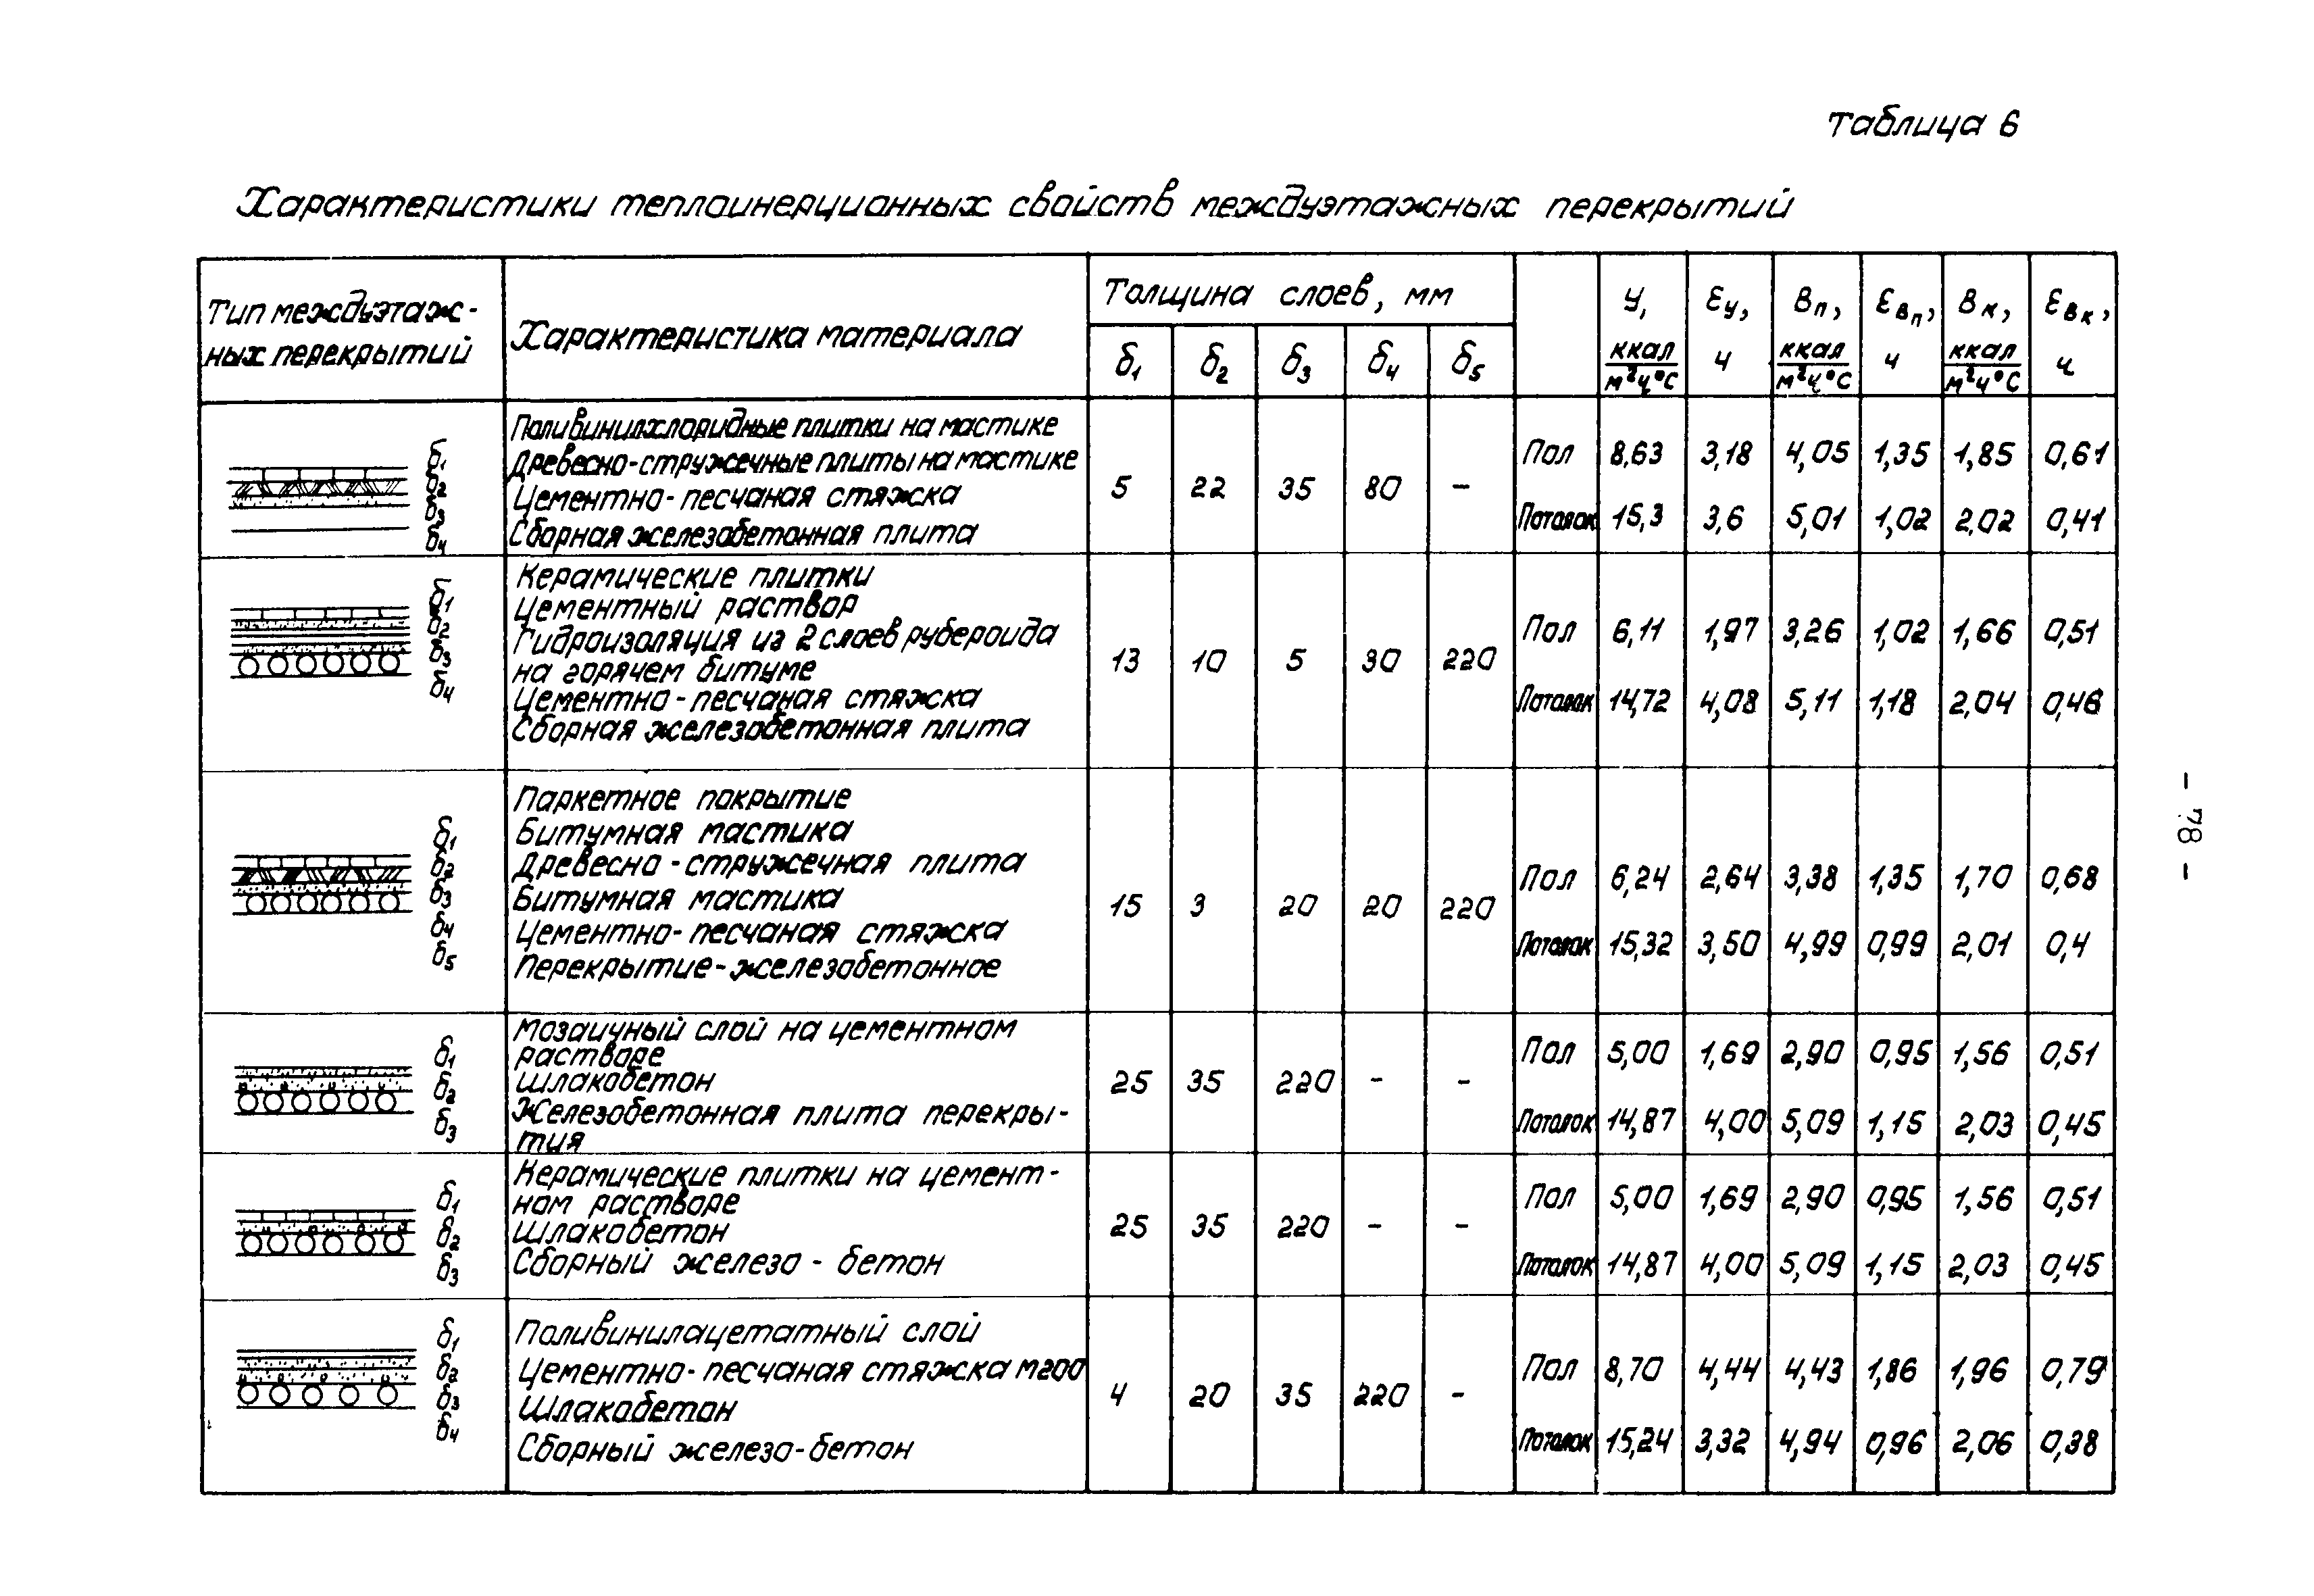 Таблица 6
Характеристики теплоинерционных свойств междуэтажных перекрытий
Тип междуэтаж-
ных перекрытий
Характеристика материала
Толщина слоев, мм
δ1 δ2 δ3 δ4 δ5
У, ккал/м²ч°С
εу, ч
Вп, ккал/м²ч°С
εВп, ч
Вк, ккал/м²ч°С
εВк, ч
δ1
δ2
δ3
δ4
Поливинилхлоридные плитки на мастике
Древесно-стружечные плиты на мастике
Цементно-песчаная стяжска
Сборная железобетонная плита
5 22 35 80 -
Пол 8,63 3,18 4,05 1,35 1,85 0,61
Потолок 15,3 3,6 5,01 1,02 2,02 0,41
δ1
δ2
δ3
δ4
Керамические плитки
Цементный раствор
Гидроизоляция из 2 слоев рубероида
на горячем битуме
Цементно-песчаная стяжска
Сборная железобетонная плита
13 10 5 30 220
Пол 6,11 1,97 3,26 1,02 1,66 0,51
Потолок 14,72 4,08 5,11 1,18 2,04 0,46
δ1
δ2
δ3
δ4
δ5
Паркетное покрытие
Битумная мастика
Древесно-стружечная плита
Битумная мастика
Цементно-песчаная стяжска
Перекрытие-железобетонное
15 3 20 20 220
Пол 6,24 2,64 3,38 1,35 1,70 0,68
Потолок 15,32 3,50 4,99 0,99 2,01 0,4
δ1
δ2
δ3
Мозаичный слой на цементном
растворе
Шлакобетон
Железобетонная плита перекры-
тия
25 35 220 - -
Пол 5,00 1,69 2,90 0,95 1,56 0,51
Потолок 14,87 4,00 5,09 1,15 2,03 0,45
δ1
δ2
δ3
Керамические плитки на цемент-
ном растворе
Шлакобетон
Сборный железо-бетон
25 35 220 - -
Пол 5,00 1,69 2,90 0,95 1,56 0,51
Потолок 14,87 4,00 5,09 1,15 2,03 0,45
δ1
δ2
δ3
δ4
Поливинилацетатный слой
Цементно-песчаная стяжска М200
Шлакобетон
Сборный железо-бетон
4 20 35 220 -
Пол 8,70 4,44 4,43 1,86 1,96 0,79
Потолок 15,24 3,32 4,94 0,96 2,06 0,38
- 78 -